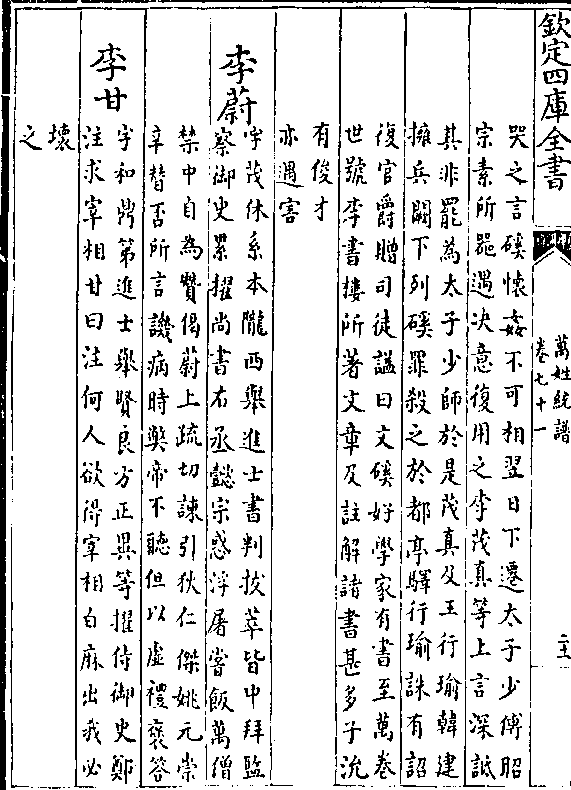 欽定四庫全書
萬姓統譜
卷七十一
哭之言磎懷姦不可相翌日下遷太子少傅昭
宗素所噐遇决意復用之李茂真等上言深詆
其非罷為太子少師於是茂真及王行瑜韓建
擁兵闕下列磎罪殺之於都亭驛行瑜誅有詔
復官爵贈司徒諡曰文磎好學家有書至萬卷
世號李書樓所著文章及註解諸書甚多子流
有俊才
亦遇害
李蔚
字茂休系本隴西舉進士書判拔萃皆中拜監
察御史累擢尚書右丞懿宗惑浮屠嘗飯萬僧
禁中自為贊偈蔚上疏切諫引狄仁傑姚元崇
辛替否所言譏病時弊帝不聽但以虛禮褒答
李甘
字和鼎第進士舉賢良方正異等擢侍御史鄭
注求宰相甘曰注何人欲得宰相白麻出我必
壞
之